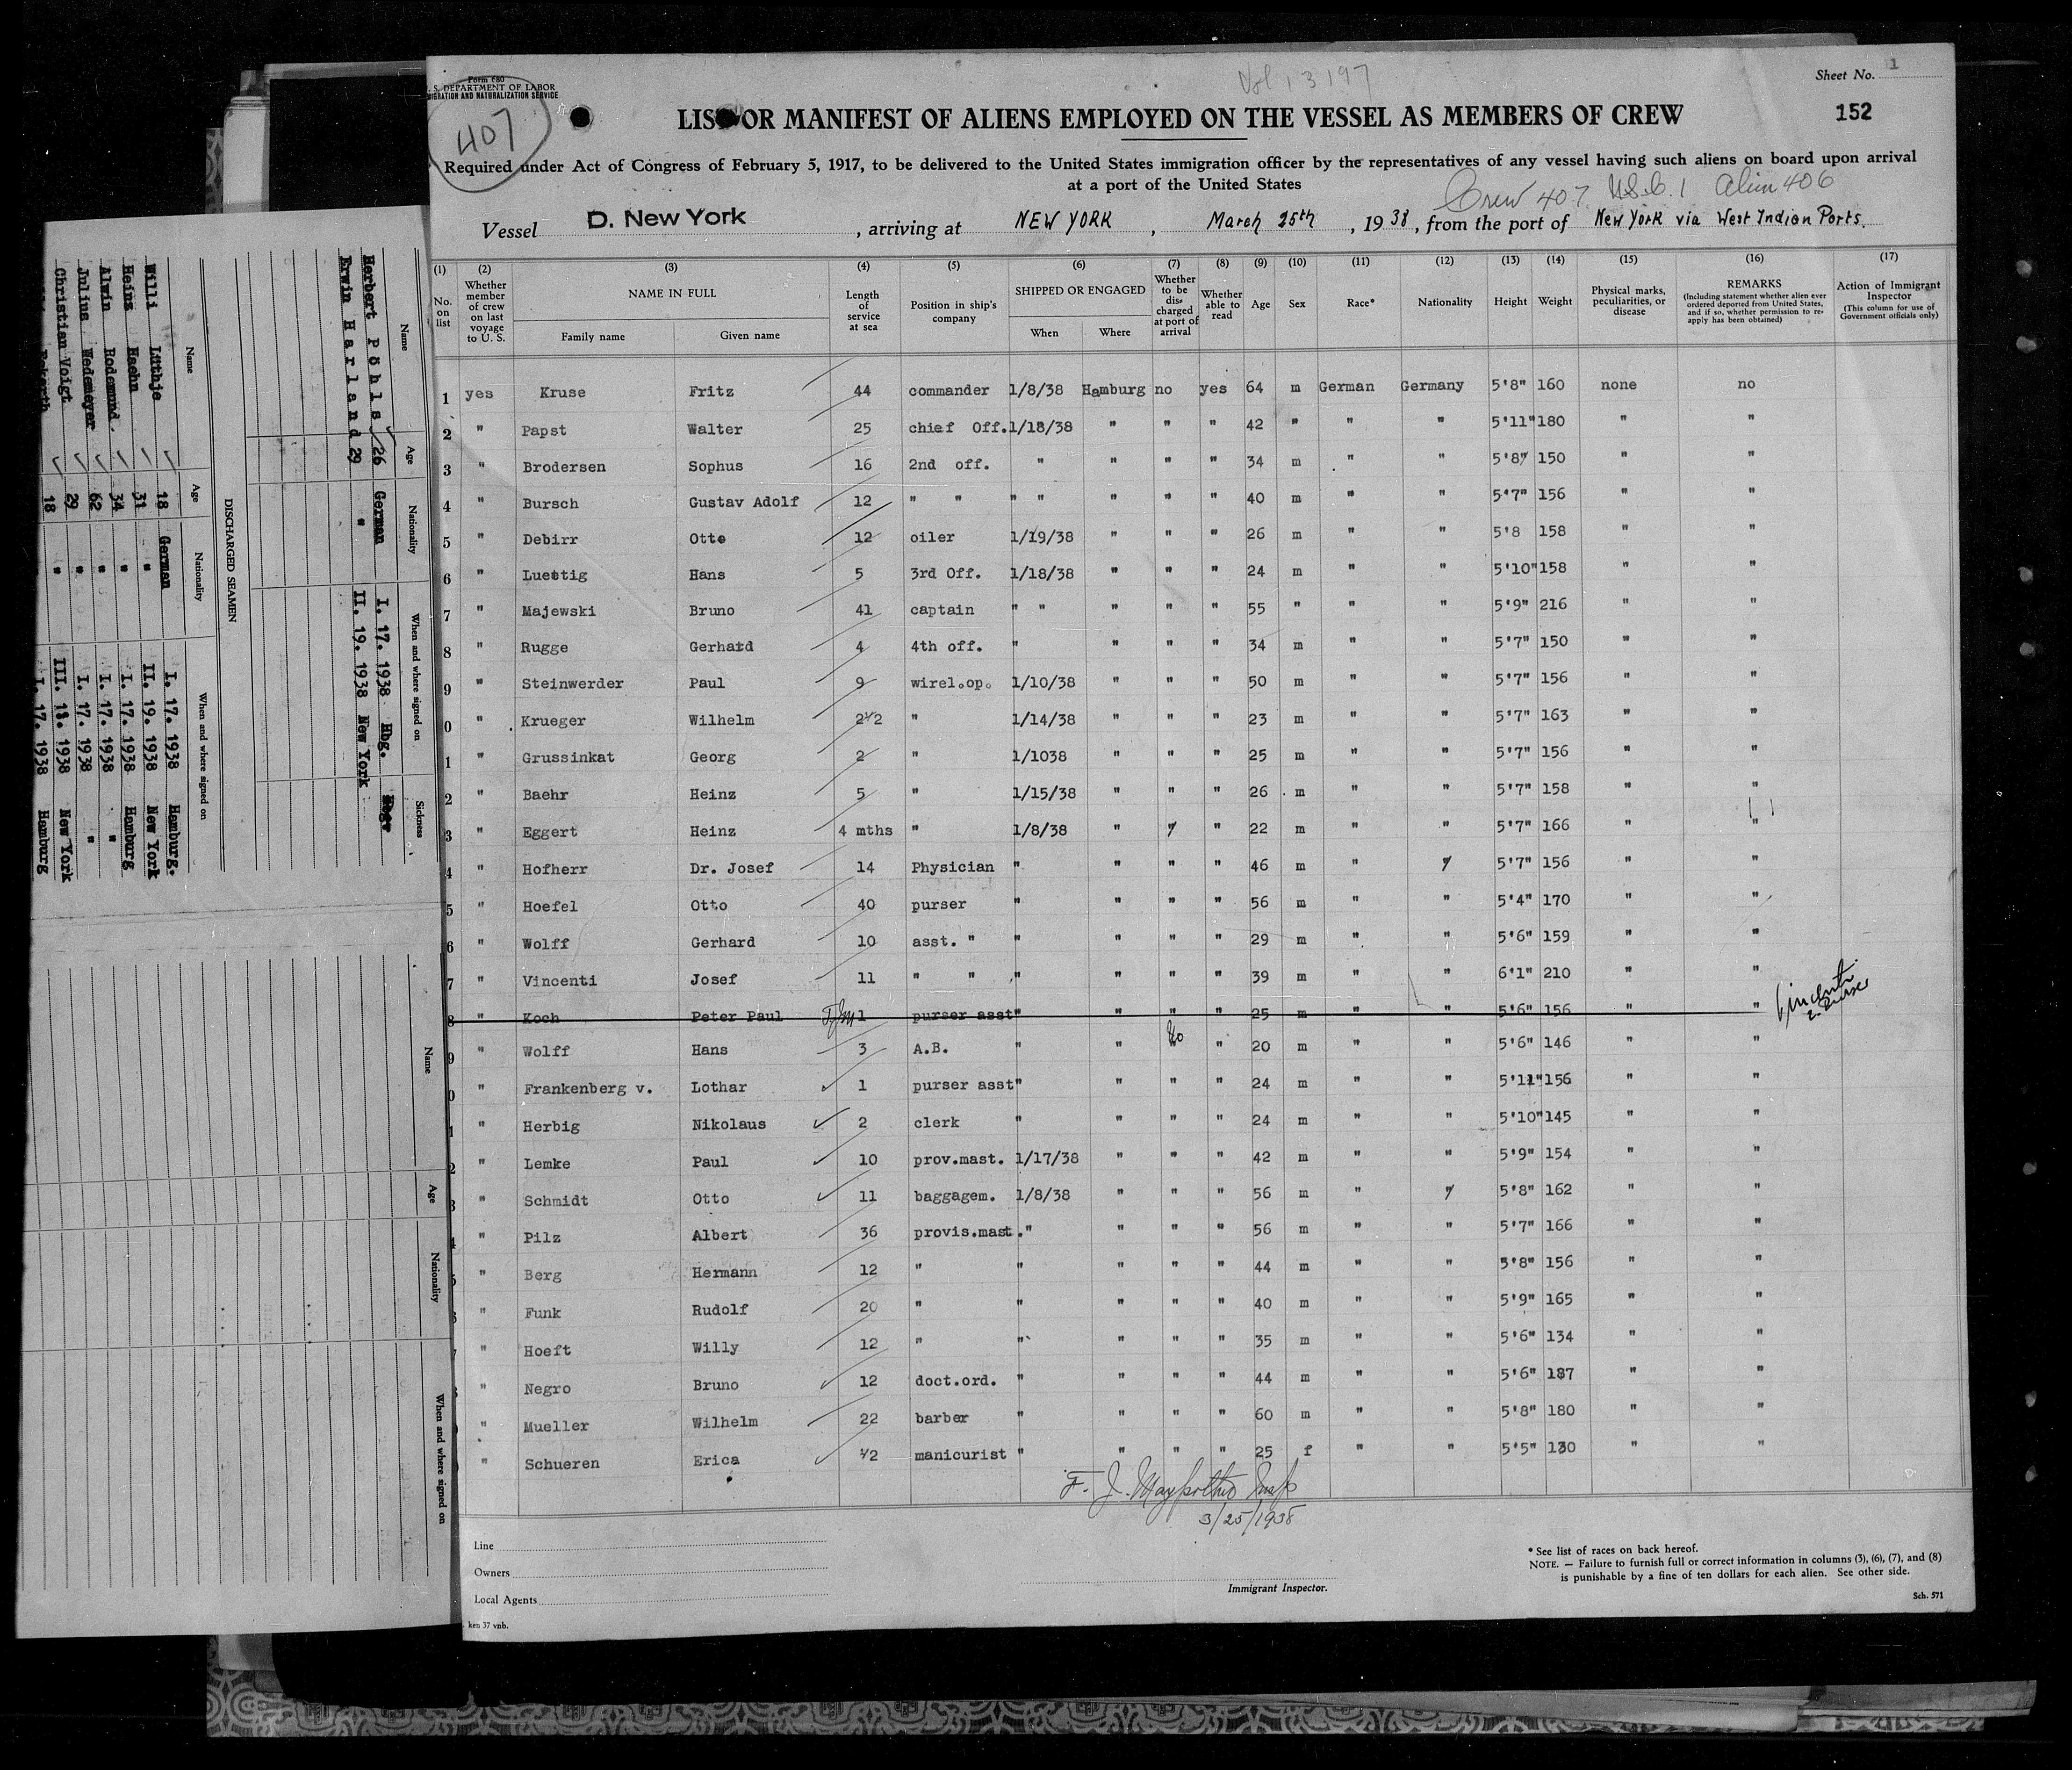 Form 680
U. S. DEPARTMENT OF LABOR
IMMIGRATION AND NATURALIZATION SERVICE
407
Vol 13197
Sheet No. 1
LIST OR MANIFEST OF ALIENS EMPLOYED ON THE VESSEL AS MEMBERS OF CREW
152
Required under Act of Congress of February 5, 1917, to be delivered to the United States immigration officer by the representatives of any vessel having such aliens on board upon arrival
at a port of the United States
Crew 407 U.S.C. 1 Alien 406
Vessel D. New York, arriving at NEW YORK, March 25th, 1938, from the port of New York via West Indian Ports.
(1) (2) (3) (4) (5) (6) (7) (8) (9) (10) (11) (12) (13) (14) (15) (16) (17)
No. on list
Whether member of crew on last voyage to U. S.
NAME IN FULL
Family name Given name
Length of service at sea
Position in ship's company
SHIPPED OR ENGAGED
When Where
Whether to be discharged at port of arrival
Whether able to read
Age
Sex
Race*
Nationality
Height
Weight
Physical marks, peculiarities, or disease
REMARKS
(Including statement whether alien ever ordered deported from United States, and if so, whether permission to reapply has been obtained)
Action of Immigrant Inspector
(This column for use of Government officials only)
1 yes Kruse Fritz 44 commander 1/8/38 Hamburg no yes 64 m German Germany 5'8" 160 none no
2 " Papst Walter 25 chief Off. 1/18/38 " " " 42 " " " 5'11" 180 " "
3 " Brodersen Sophus 16 2nd off. " " " " 34 m " " 5'8" 150 " "
4 " Bursch Gustav Adolf 12 " " " " " " " 40 m " " 5'7" 156 " "
5 " Debirr Otto 12 oiler 1/19/38 " " " 26 m " " 5'8 158 " "
6 " Luettig Hans 5 3rd Off. 1/18/38 " " " 24 m " " 5'10" 158 " "
7 " Majewski Bruno 41 captain " " " " " 55 " " " 5'9" 216 " "
8 " Rugge Gerhard 4 4th off. " " " " 34 m " " 5'7" 150 " "
9 " Steinwerder Paul 9 wirel.op. 1/10/38 " " " 50 m " " 5'7" 156 " "
0 " Krueger Wilhelm 2½ " 1/14/38 " " " 23 m " " 5'7" 163 " "
1 " Grussinkat Georg 2 " 1/1038 " " " 25 m " " 5'7" 156 " "
2 " Baehr Heinz 5 " 1/15/38 " " " 26 m " " 5'7" 158 " "
3 " Eggert Heinz 4 mths " 1/8/38 " " " 22 m " " 5'7" 166 " "
4 " Hofherr Dr. Josef 14 Physician " " " " 46 m " " 5'7" 156 " "
5 " Hoefel Otto 40 purser " " " " 56 m " " 5'4" 170 " "
6 " Wolff Gerhard 10 asst. " " " " " 29 m " " 5'6" 159 " "
7 " Vincenti Josef 11 " " " " " " 39 m " " 6'1" 210 " "
8 " Koch Peter Paul 1 purser asst " " " " 25 m " " 5'6" 156 " " Vincenti
2. Purser
9 " Wolff Hans 3 A.B. " " No " 20 m " " 5'6" 146 " "
0 " Frankenberg v. Lothar 1 purser asst " " " " 24 m " " 5'11" 156 " "
1 " Herbig Nikolaus 2 clerk " " " " 24 m " " 5'10" 145 " "
2 " Lemke Paul 10 prov.mast. 1/17/38 " " " 42 m " " 5'9" 154 " "
3 " Schmidt Otto 11 baggagem. 1/8/38 " " " 56 m " " 5'8" 162 " "
4 " Pilz Albert 36 provis.mast. " " " " 56 m " " 5'7" 166 " "
5 " Berg Hermann 12 " " " " " 44 m " " 5'8" 156 " "
6 " Funk Rudolf 20 " " " " " 40 m " " 5'9" 165 " "
7 " Hoeft Willy 12 " " " " " 35 m " " 5'6" 134 " "
" Negro Bruno 12 doct.ord. " " " " 44 m " " 5'6" 187 " "
" Mueller Wilhelm 22 barber " " " " 60 m " " 5'8" 180 " "
" Schueren Erica ½ manicurist " " " " 25 f " " 5'5" 130 " "
F. J. Insp
3/25/1938
Line
Owners
Local Agents
Immigrant Inspector.
* See list of races on back hereof.
NOTE. — Failure to furnish full or correct information in columns (3), (6), (7), and (8)
is punishable by a fine of ten dollars for each alien. See other side.
Sch. 571
ken 37 vnb.
Name Age Nationality When and where signed on Sickness
Herbert Pöhls 26 German I. 17. 1938 Hbg.
Erwin Harland 29 " II. 19. 1938 New York
DISCHARGED SEAMEN
Name Age Nationality When and where signed on
Willi Lüthje 18 German I. 17. 1938 Hamburg.
Heins Haehn 31 " II. 19. 1938 New York
Alwin Rodemund. 34 " I. 17. 1938 Hamburg
Julius Wedemeyer 62 " I. 17. 1938 "
Christian Voigt. 29 " I. 17. 1938 "
18 " III. 18. 1938 New York
I. 17. 1938 Hamburg
Name Age Nationality When and where signed on